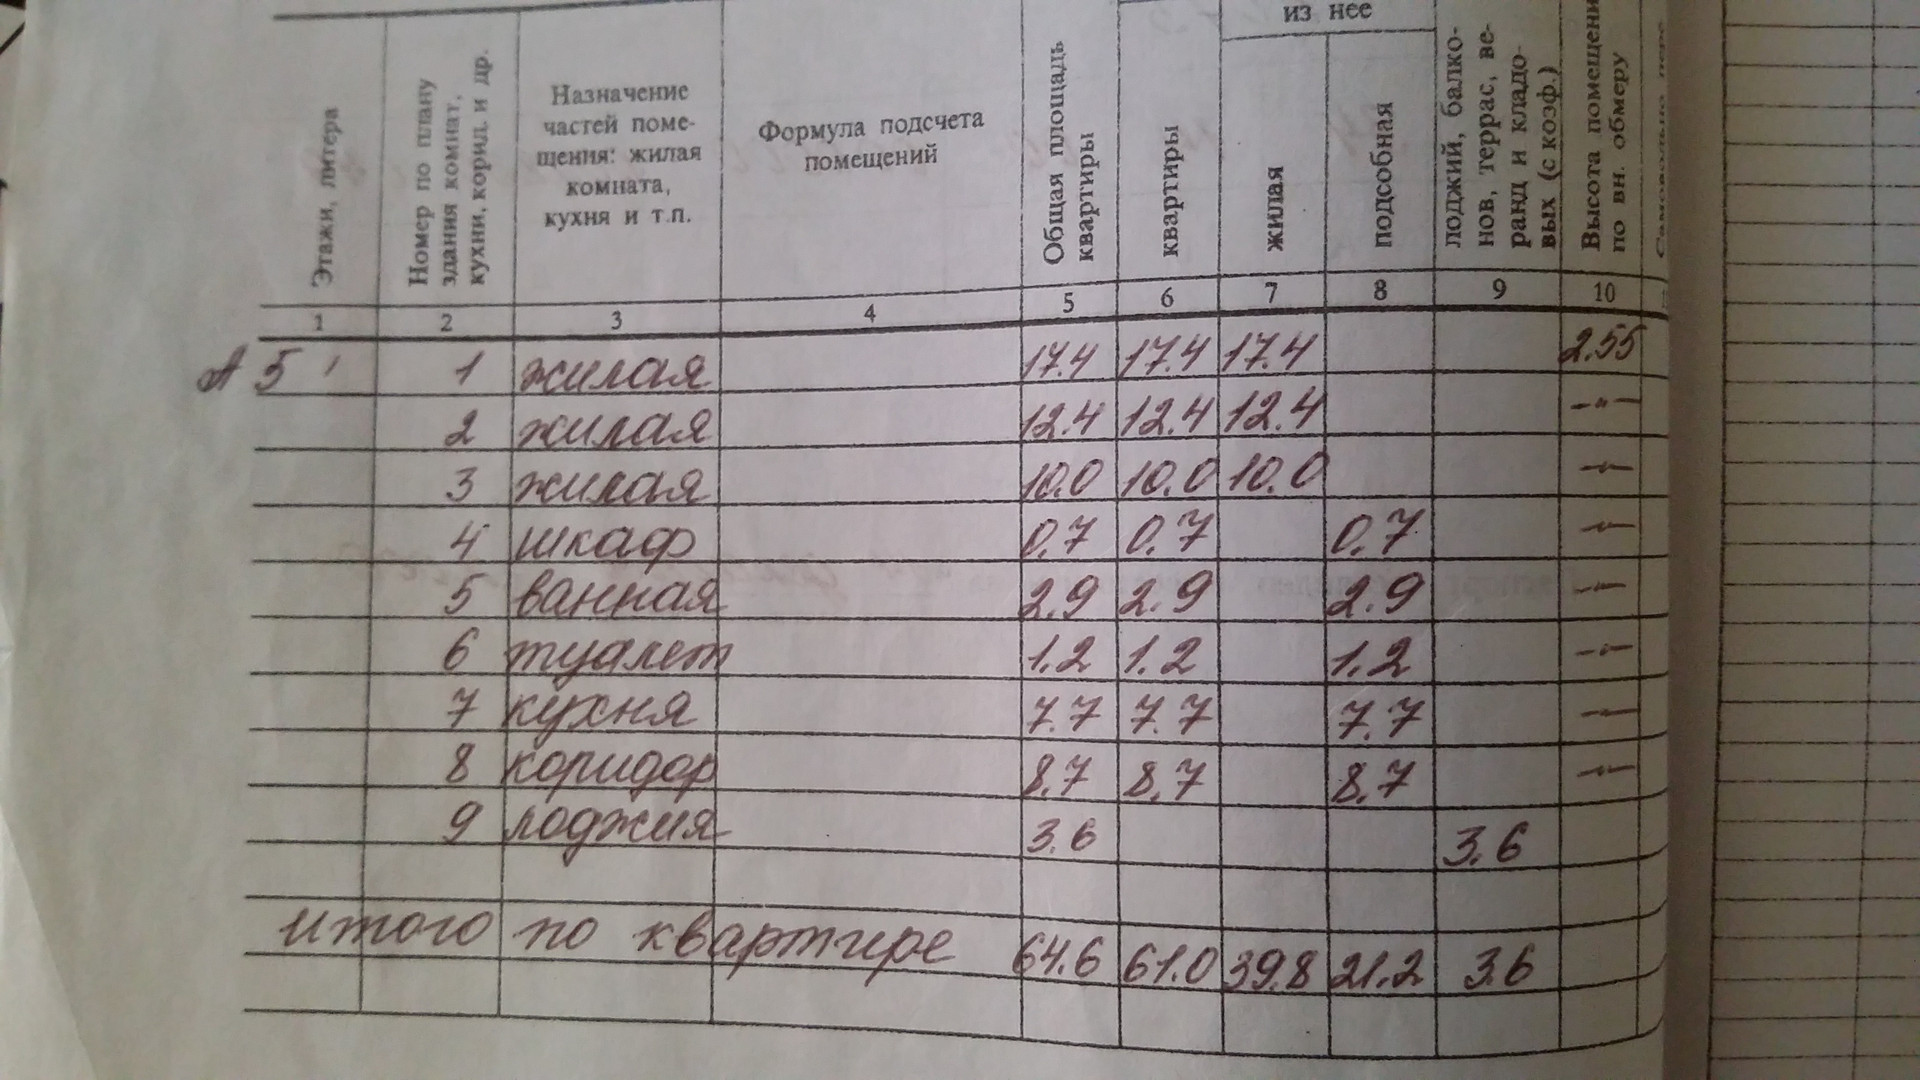 из нее
Этажи, литера
Номер по плану
здания комнат,
кухни, корид. и др.
Назначение
частей поме-
щения: жилая
комната,
кухня и т.п.
Формула подсчета
помещений
Общая площадь
квартиры
квартиры
жилая
подсобная
лоджий, балко-
нов, террас, ве-
ранд и кладо-
вых (с коэф.)
Высота помещени
по вн. обмеру
1 2 3 4 5 6 7 8 9 10
А 5 1 жилая 17.4 17.4 17.4 2.55
2 жилая 12.4 12.4 12.4 -"-
3 жилая 10.0 10.0 10.0 -"-
4 шкаф 0.7 0.7 0.7 -"-
5 ванная 2.9 2.9 2.9 -"-
6 туалет 1.2 1.2 1.2 -"-
7 кухня 7.7 7.7 7.7 -"-
8 коридор 8.7 8.7 8.7 -"-
9 лоджия 3.6 3.6
итого по квартире 64.6 61.0 39.8 21.2 3.6